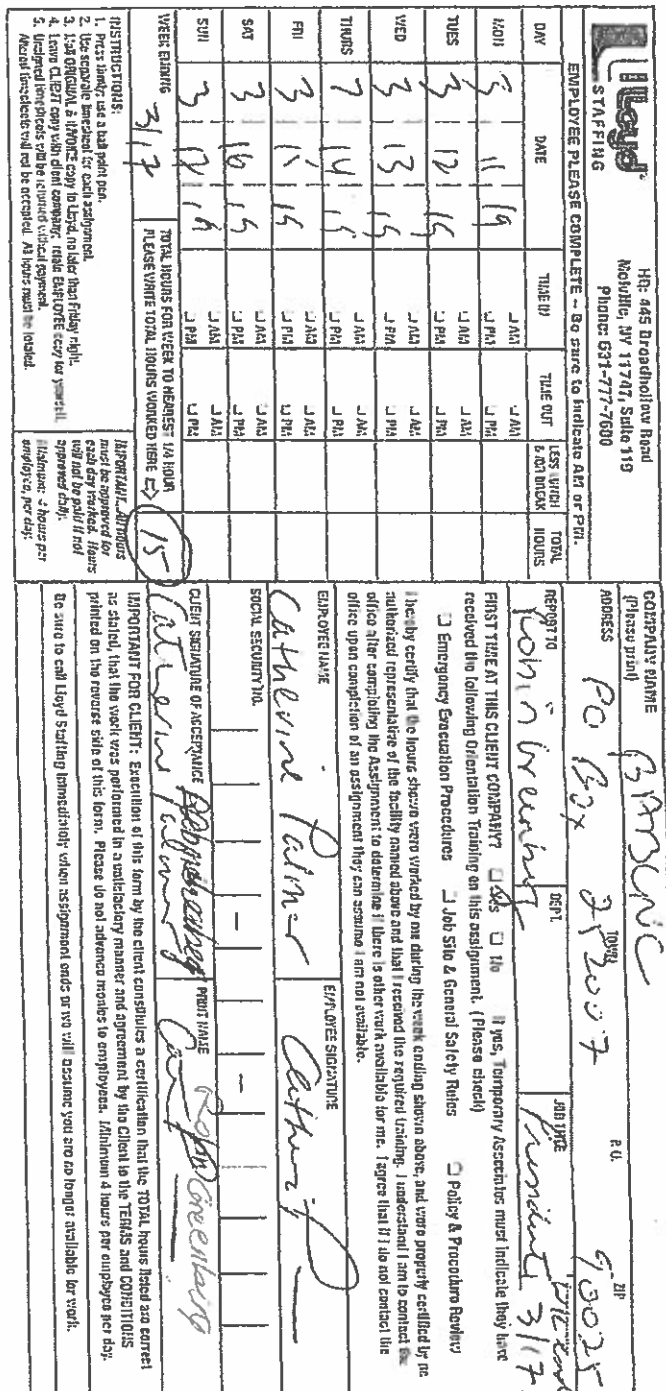 Lloyd
STAFFING
HQ: 445 Broadhollow Road
Melville, NY 11747, Suite 119
Phone: 631-777-7600
EMPLOYEE PLEASE COMPLETE – Be sure to indicate AM or PM.
DAY DATE TIME IN TIME OUT LESS LUNCH & /OR BREAK TOTAL HOURS
MON 3 11 19 AM PM AM PM
TUES 3 12 AM PM AM PM
WED 3 13 AM PM AM PM
THURS 14 AM PM AM PM
FRI 3 15 AM PM AM PM
SAT 3 16 AM PM AM PM
SUN 3 17 19 AM PM AM PM
WEEK ENDING 3/17
TOTAL HOURS FOR WEEK TO NEAREST 1/4 HOUR
PLEASE WRITE TOTAL HOURS WORKED HERE 15
INSTRUCTIONS:
1. Press firmly; use a ball point pen.
2. Use separate timesheet for each assignment.
3. Mail ORIGINAL & INVOICE copy to Lloyd, no later than Friday night.
4. Leave CLIENT copy with client company; retain EMPLOYEE copy for yourself.
5. Unsigned timesheets will be returned without payment.
Altered timesheets will not be accepted. All hours must be totaled.
IMPORTANT: All hours
must be approved for
each day worked. Hours
will not be paid if not
approved daily.
Minimum: 4 hours per
employee, per day.
COMPANY NAME
(Please print)
ADDRESS PO Box
TOWN
P.O.
ZIP
REPORT TO Robin Greenberg
DEPT.
JOB TITLE
3/17
FIRST TIME AT THIS CLIENT COMPANY? Yes No If yes, Temporary Associates must indicate they have
received the following Orientation Training on this assignment. (Please check)
Emergency Evacuation Procedures Job Site & General Safety Rules Policy & Procedure Review
I hereby certify that the hours shown were worked by me during the week ending shown above, and were properly certified by an
authorized representative of the facility named above and that I received the required training. I understand I am to contact the
office after completing the Assignment to determine if there is other work available for me. I agree that if I do not contact the
office upon completion of an assignment they can assume I am not available.
EMPLOYEE NAME
Catherine Palmer
EMPLOYEE SIGNATURE
SOCIAL SECURITY NO.
CLIENT SIGNATURE OF ACCEPTANCE
Catherine Palmer
PRINT NAME
Robin Greenberg
IMPORTANT FOR CLIENT: Execution of this form by the client constitutes a certification that the TOTAL hours listed are correct
as stated, that the work was performed in a satisfactory manner and agreement by the Client to the TERMS and CONDITIONS
printed on the reverse side of this form. Please do not advance monies to employees. Minimum 4 hours per employee per day.
Be sure to call Lloyd Staffing immediately when assignment ends or we will assume you are no longer available for work.